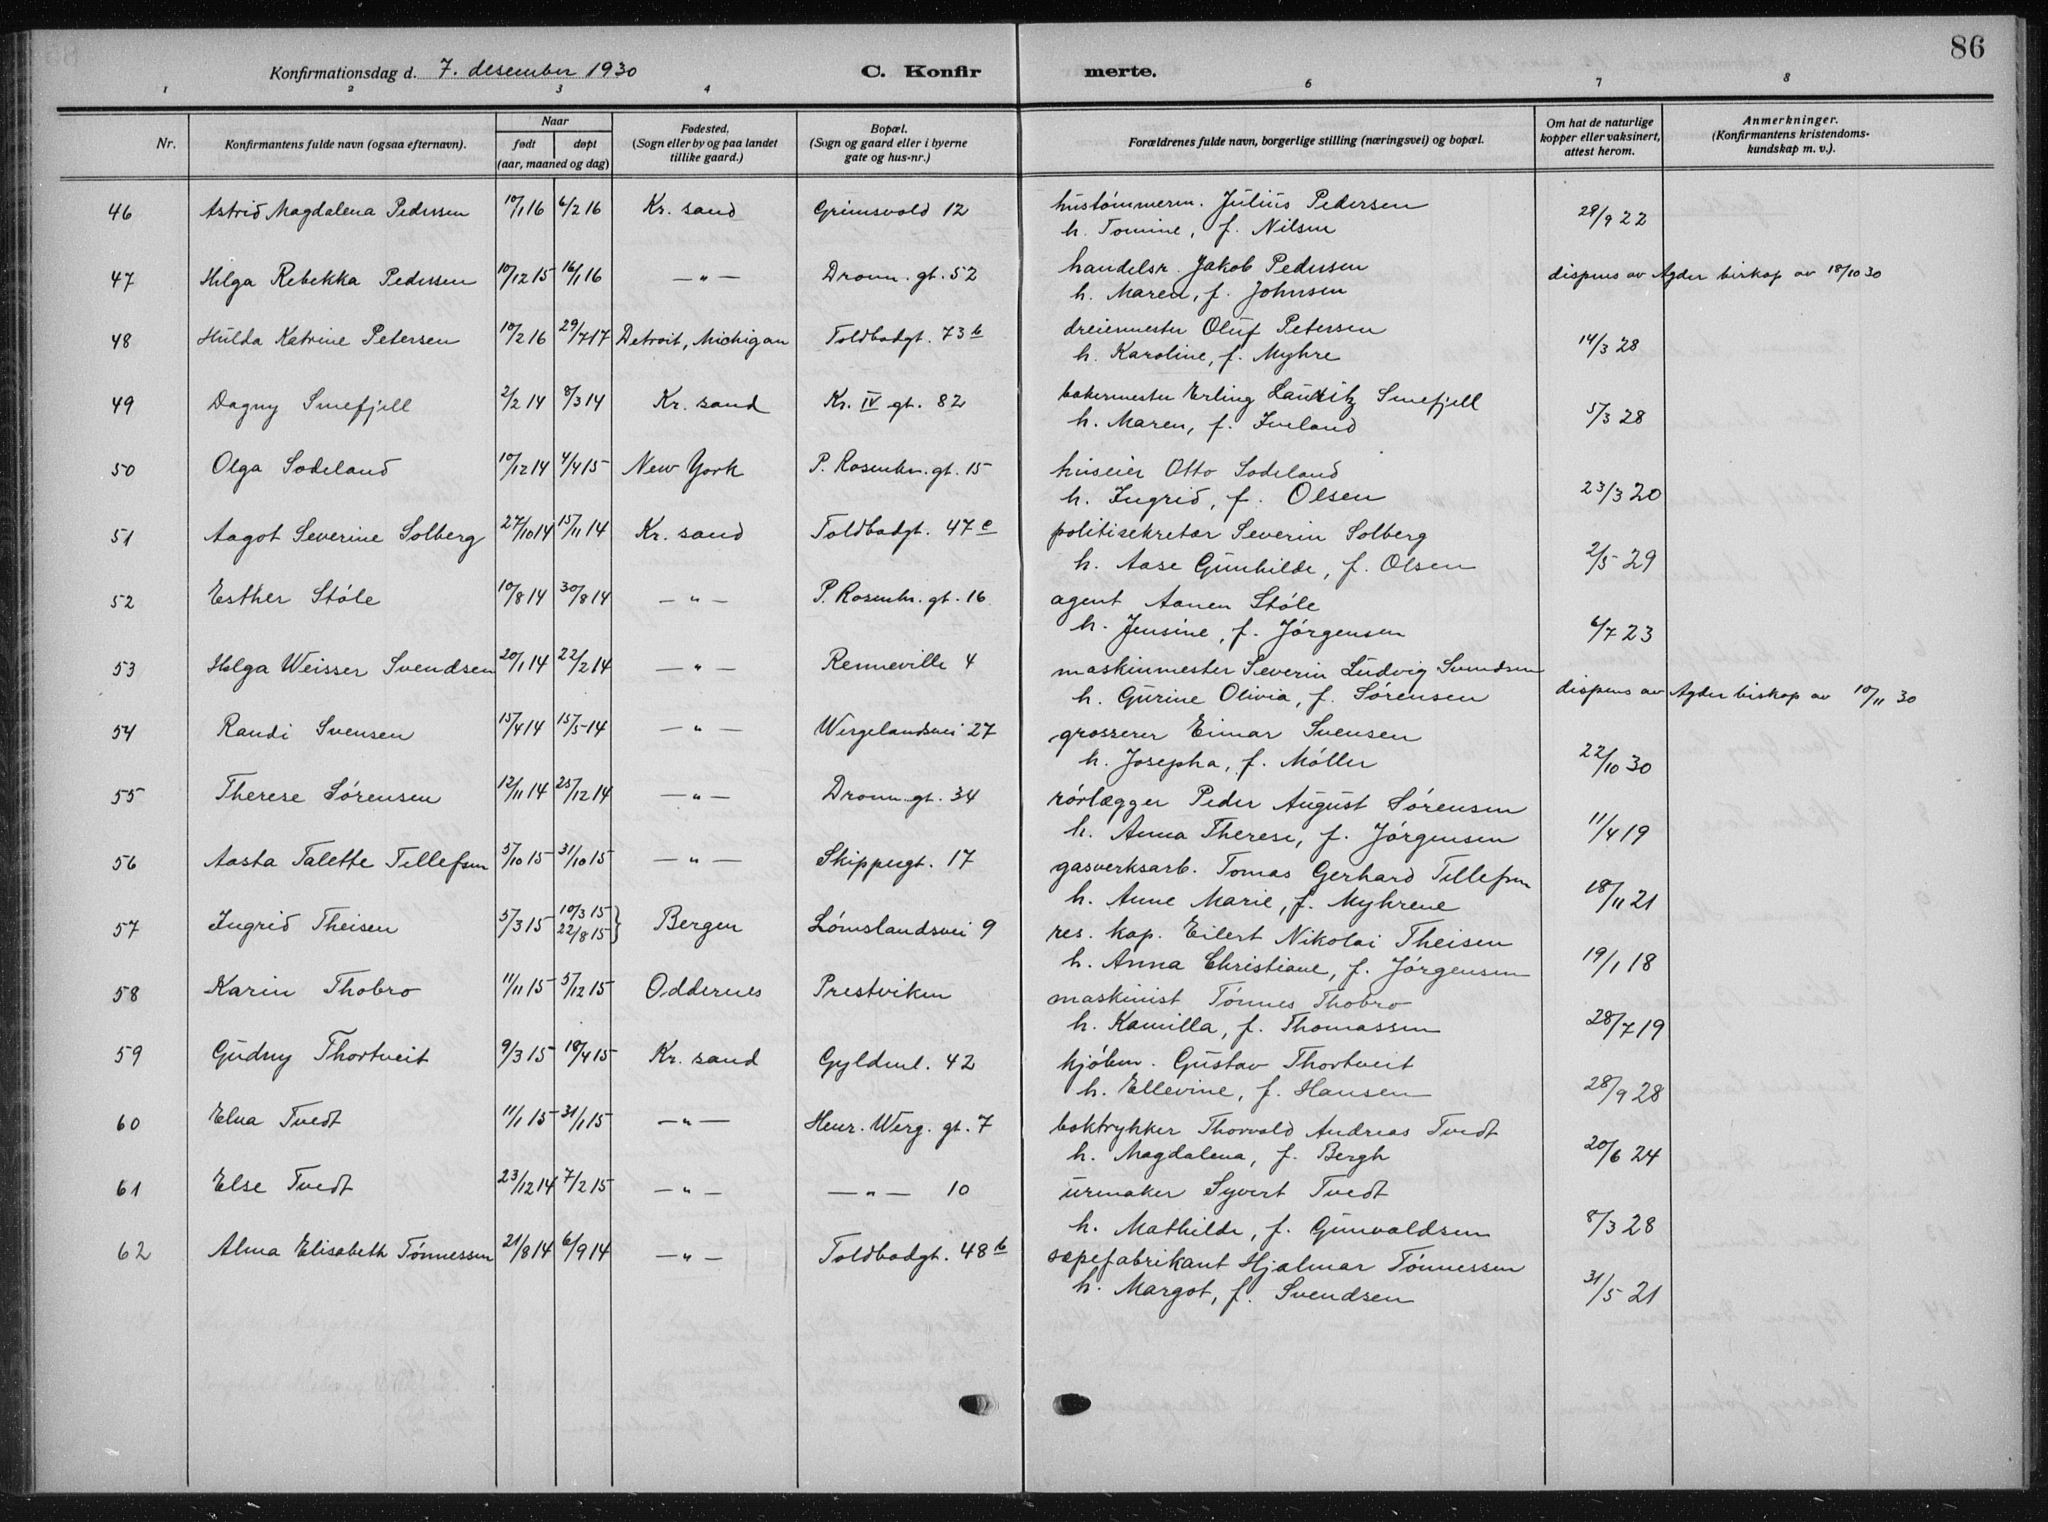 86
Konfirmationsdag d. 7. desember 1930 C. Konfirmerte.
1 2 3 4 6 7 8
Nr. Konfirmantens fulde navn (ogsaa efternavn). Naar født døpt (aar, maaned og dag) Fødested. (Sogn eller by og paa landet tillike gaard.) Bopæl. (Sogn og gaard eller i byerne gate og hus-nr.) Forældrenes fulde navn, borgerlige stilling (næringsvei) og bopæl. Om hat de naturlige kopper eller vaksinert, attest herom. Anmerkninger. (Konfirmantens kristendomskundskap m. v.).
46 Astrid Magdalena Pedersen 10/1 16 6/2 16 Kr. sand Grimsvold 12 hustømmerm. Julius Pedersen
h. Tomine, f. Nilsen 29/9 22
47 Helga Rebekka Pedersen 10/12 15 16/1 16 — " — Dronn. gt. 52 handelsr. Jakob Pedersen
h. Maren, f. Johnsen dispens av Agder biskop av 18/10 30
48 Hulda Katrine Petersen 10/2 16 29/7 17 Detroit, Michigan Toldbodgt. 73 b dreiermester Oluf Petersen
h. Karoline, f. Myhre 14/3 28
49 Dagny Smefjell 2/2 14 8/3 14 Kr. sand Kr. IV gt. 82 bakermester Erling Lauritz Smefjell
h. Maren, f. Iveland 5/3 28
50 Olga Sodeland 10/12 14 4/4 15 New York P. Rosenkr. gt. 15 huseier Otto Sodeland
h. Ingrid, f. Olsen 23/3 20
51 Aagot Severine Solberg 27/10 14 15/11 14 Kr. sand Toldbodgt. 47 c politisekretær Severin Solberg
h. Aase Gunhilde, f. Olsen 2/5 29
52 Esther Støle 10/8 14 30/8 14 — " — P. Rosenkr. gt. 16 agent Aanen Støle
h. Jensine, f. Jørgensen 6/7 23
53 Helga Weisser Svendsen 20/1 14 22/2 14 — " — Renneville 4 maskinmester Severin Ludvig Svendsen
h. Gurine Olivia, f. Sørensen dispens av Agder biskop av 10/11 30
54 Randi Svensen 15/4 14 15/5 14 — " — Wergelandsvei 27 grosserer Einar Svensen
h. Josepha, f. Møller 22/10 30
55 Therese Sørensen 12/11 14 25/12 14 — " — Dronn. gt. 34 rørlægger Peder August Sørensen
h. Anna Therese, f. Jørgensen 11/4 19
56 Aasta Talette Tellefsen 5/10 15 31/10 15 — " — Skippergt. 17 gasverksarb. Tomas Gerhard Tellefsen
h. Anne Marie, f. Myhrene 18/11 21
57 Ingrid Theisen 5/3 15 10/3 15 22/8 15 } Bergen Lømslandsvei 9 res. kap. Eilert Nikolai Theisen
h. Anna Christiane, f. Jørgensen 19/1 18
58 Karin Thobro 11/11 15 5/12 15 Oddernes Prestviken maskinist Tønnes Thobro
h. Kamilla, f. Thomassen 28/7 19
59 Gudny Thortveit 9/3 15 18/4 15 Kr. sand Gyldenl. 42 kjøbm. Gustav Thortveit
h. Ellevine, f. Hansen 28/9 28
60 Elna Tvedt 11/1 15 31/1 15 — " — Henr. Werg. gt. 7 boktrykker Thorvald Andreas Tvedt
h. Magdalena, f. Bergh 20/6 24
61 Else Tvedt 23/12 14 7/2 15 — " — — " — 10 urmaker Syvert Tvedt
h. Mathilde, f. Gunvaldsen 8/3 28
62 Alma Elisabeth Tønnessen 21/8 14 6/9 14 — " — Toldbodgt. 48 b sæpefabrikant Hjalmar Tønnessen
h. Margot, f. Svendsen 31/5 21